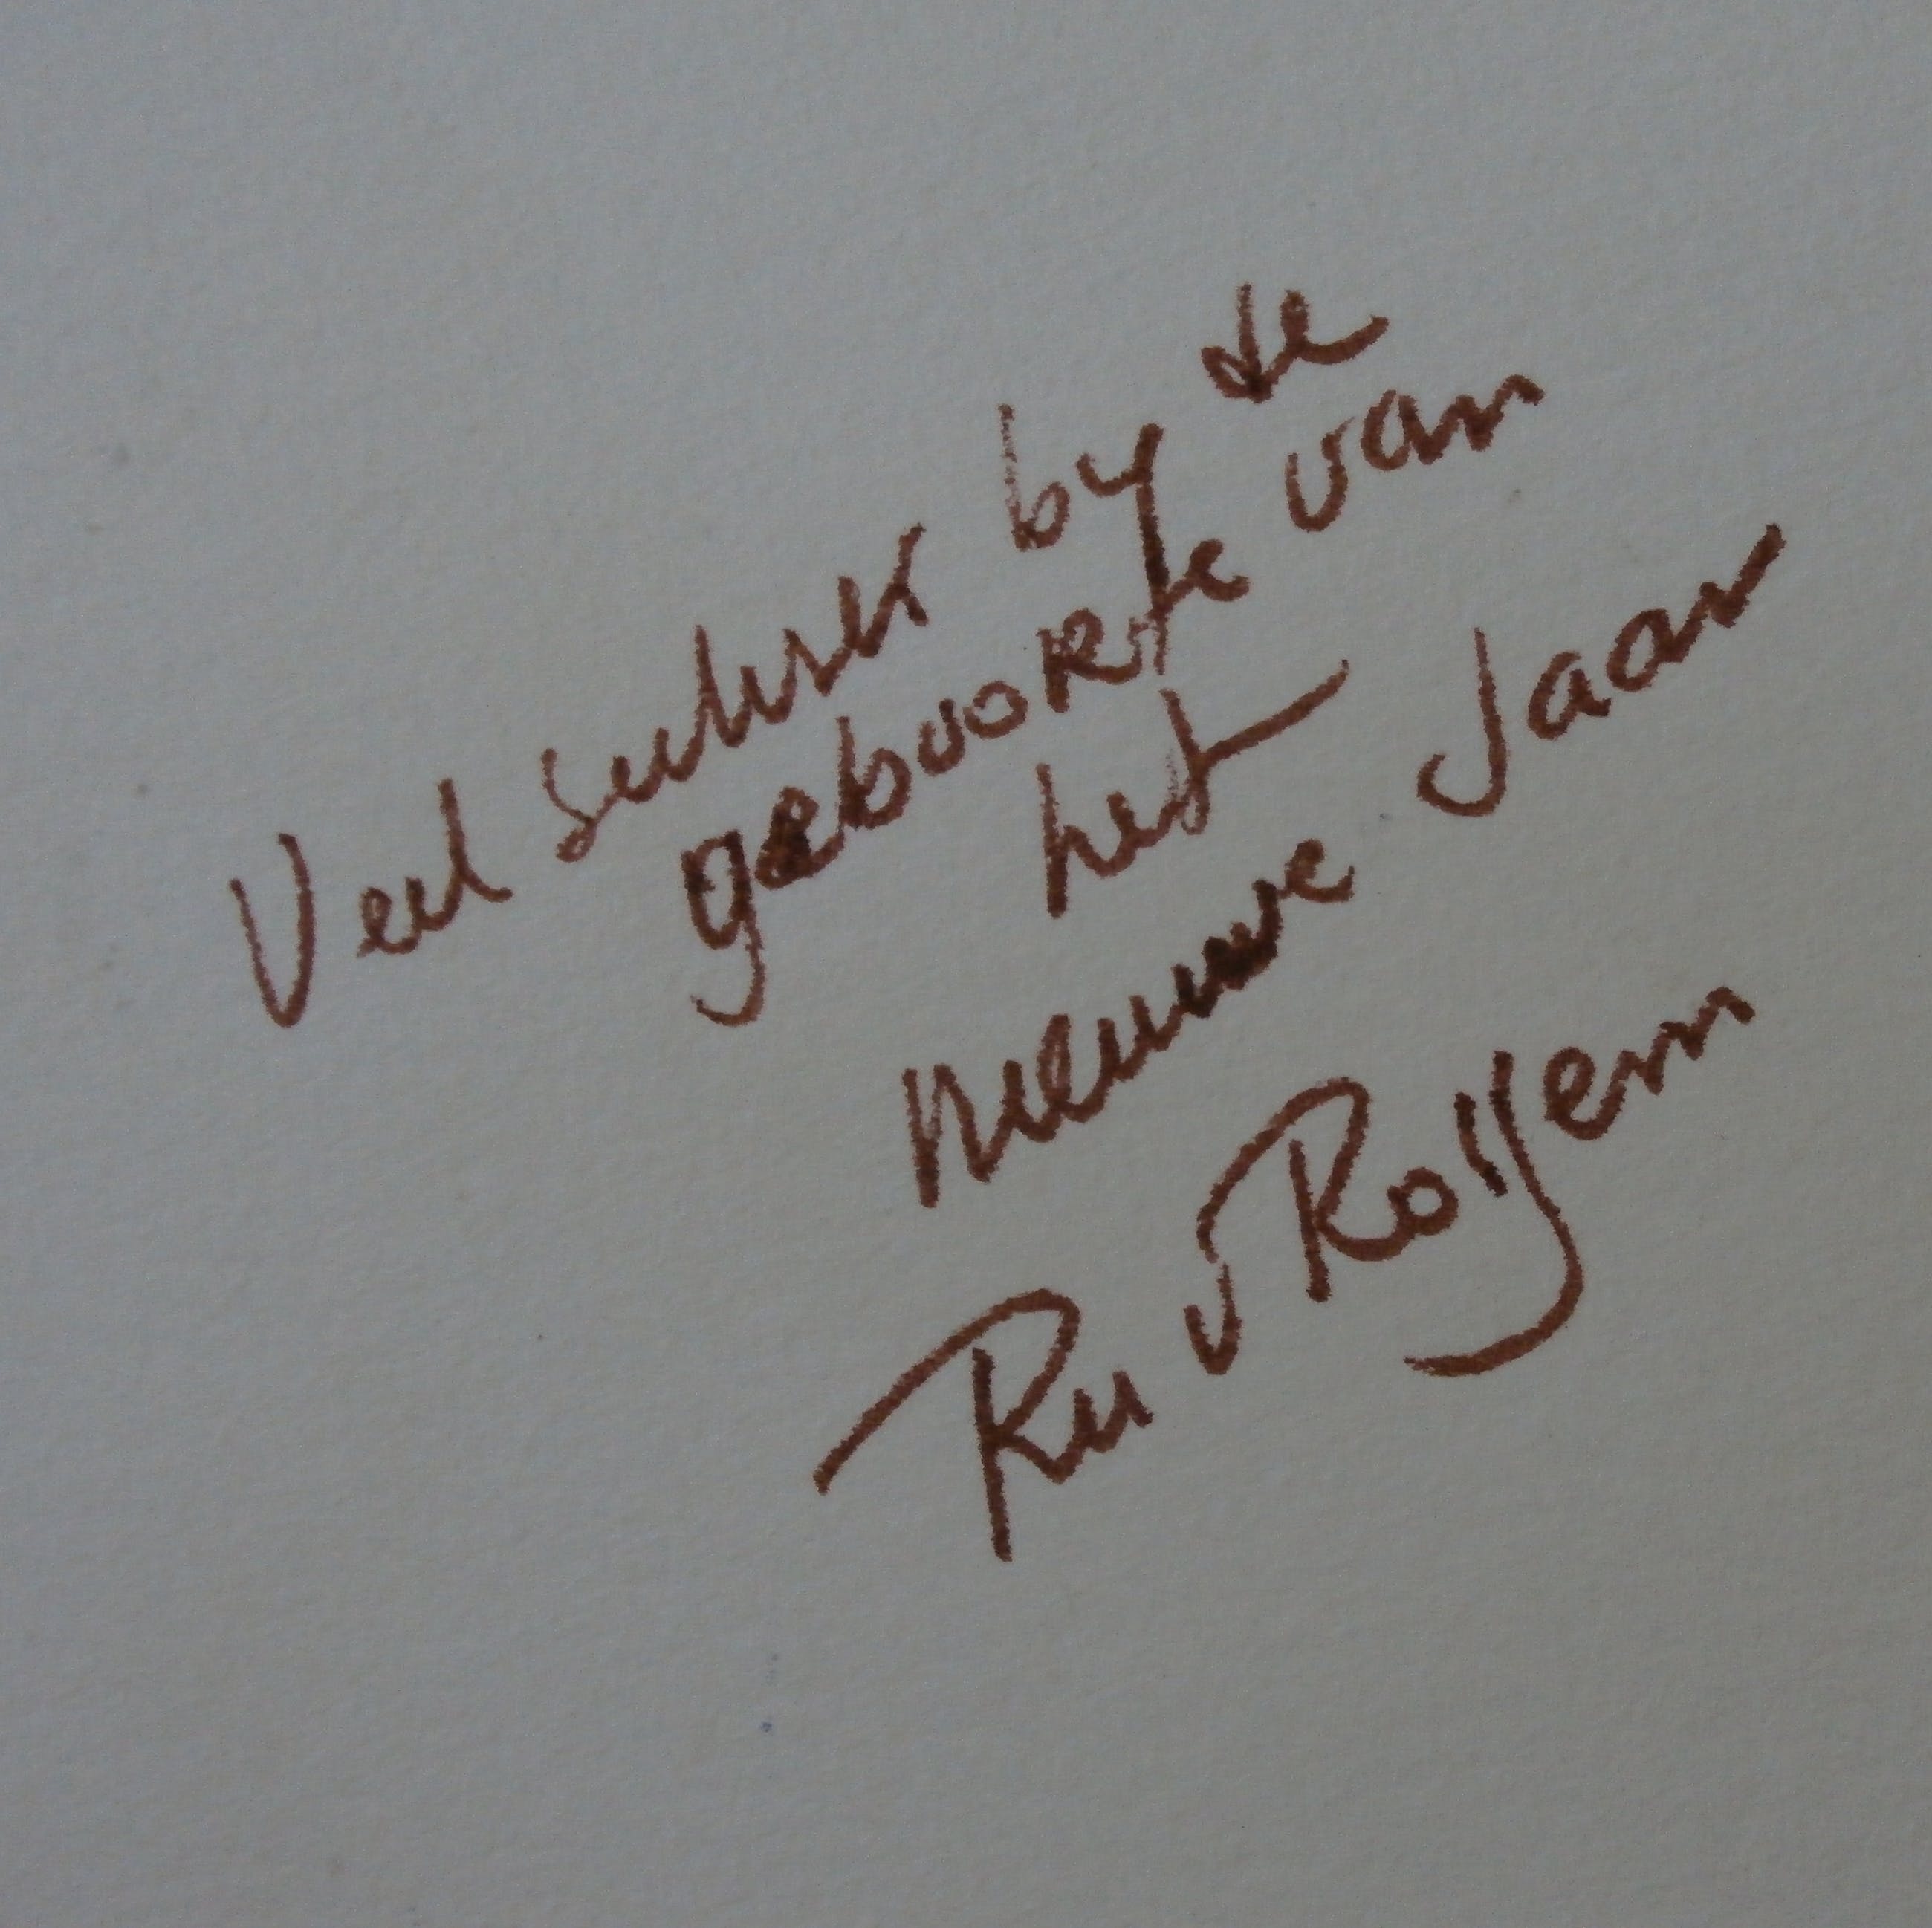 Veel succes by de
geboorte van
het
nieuwe Jaar
Ru v Rossem